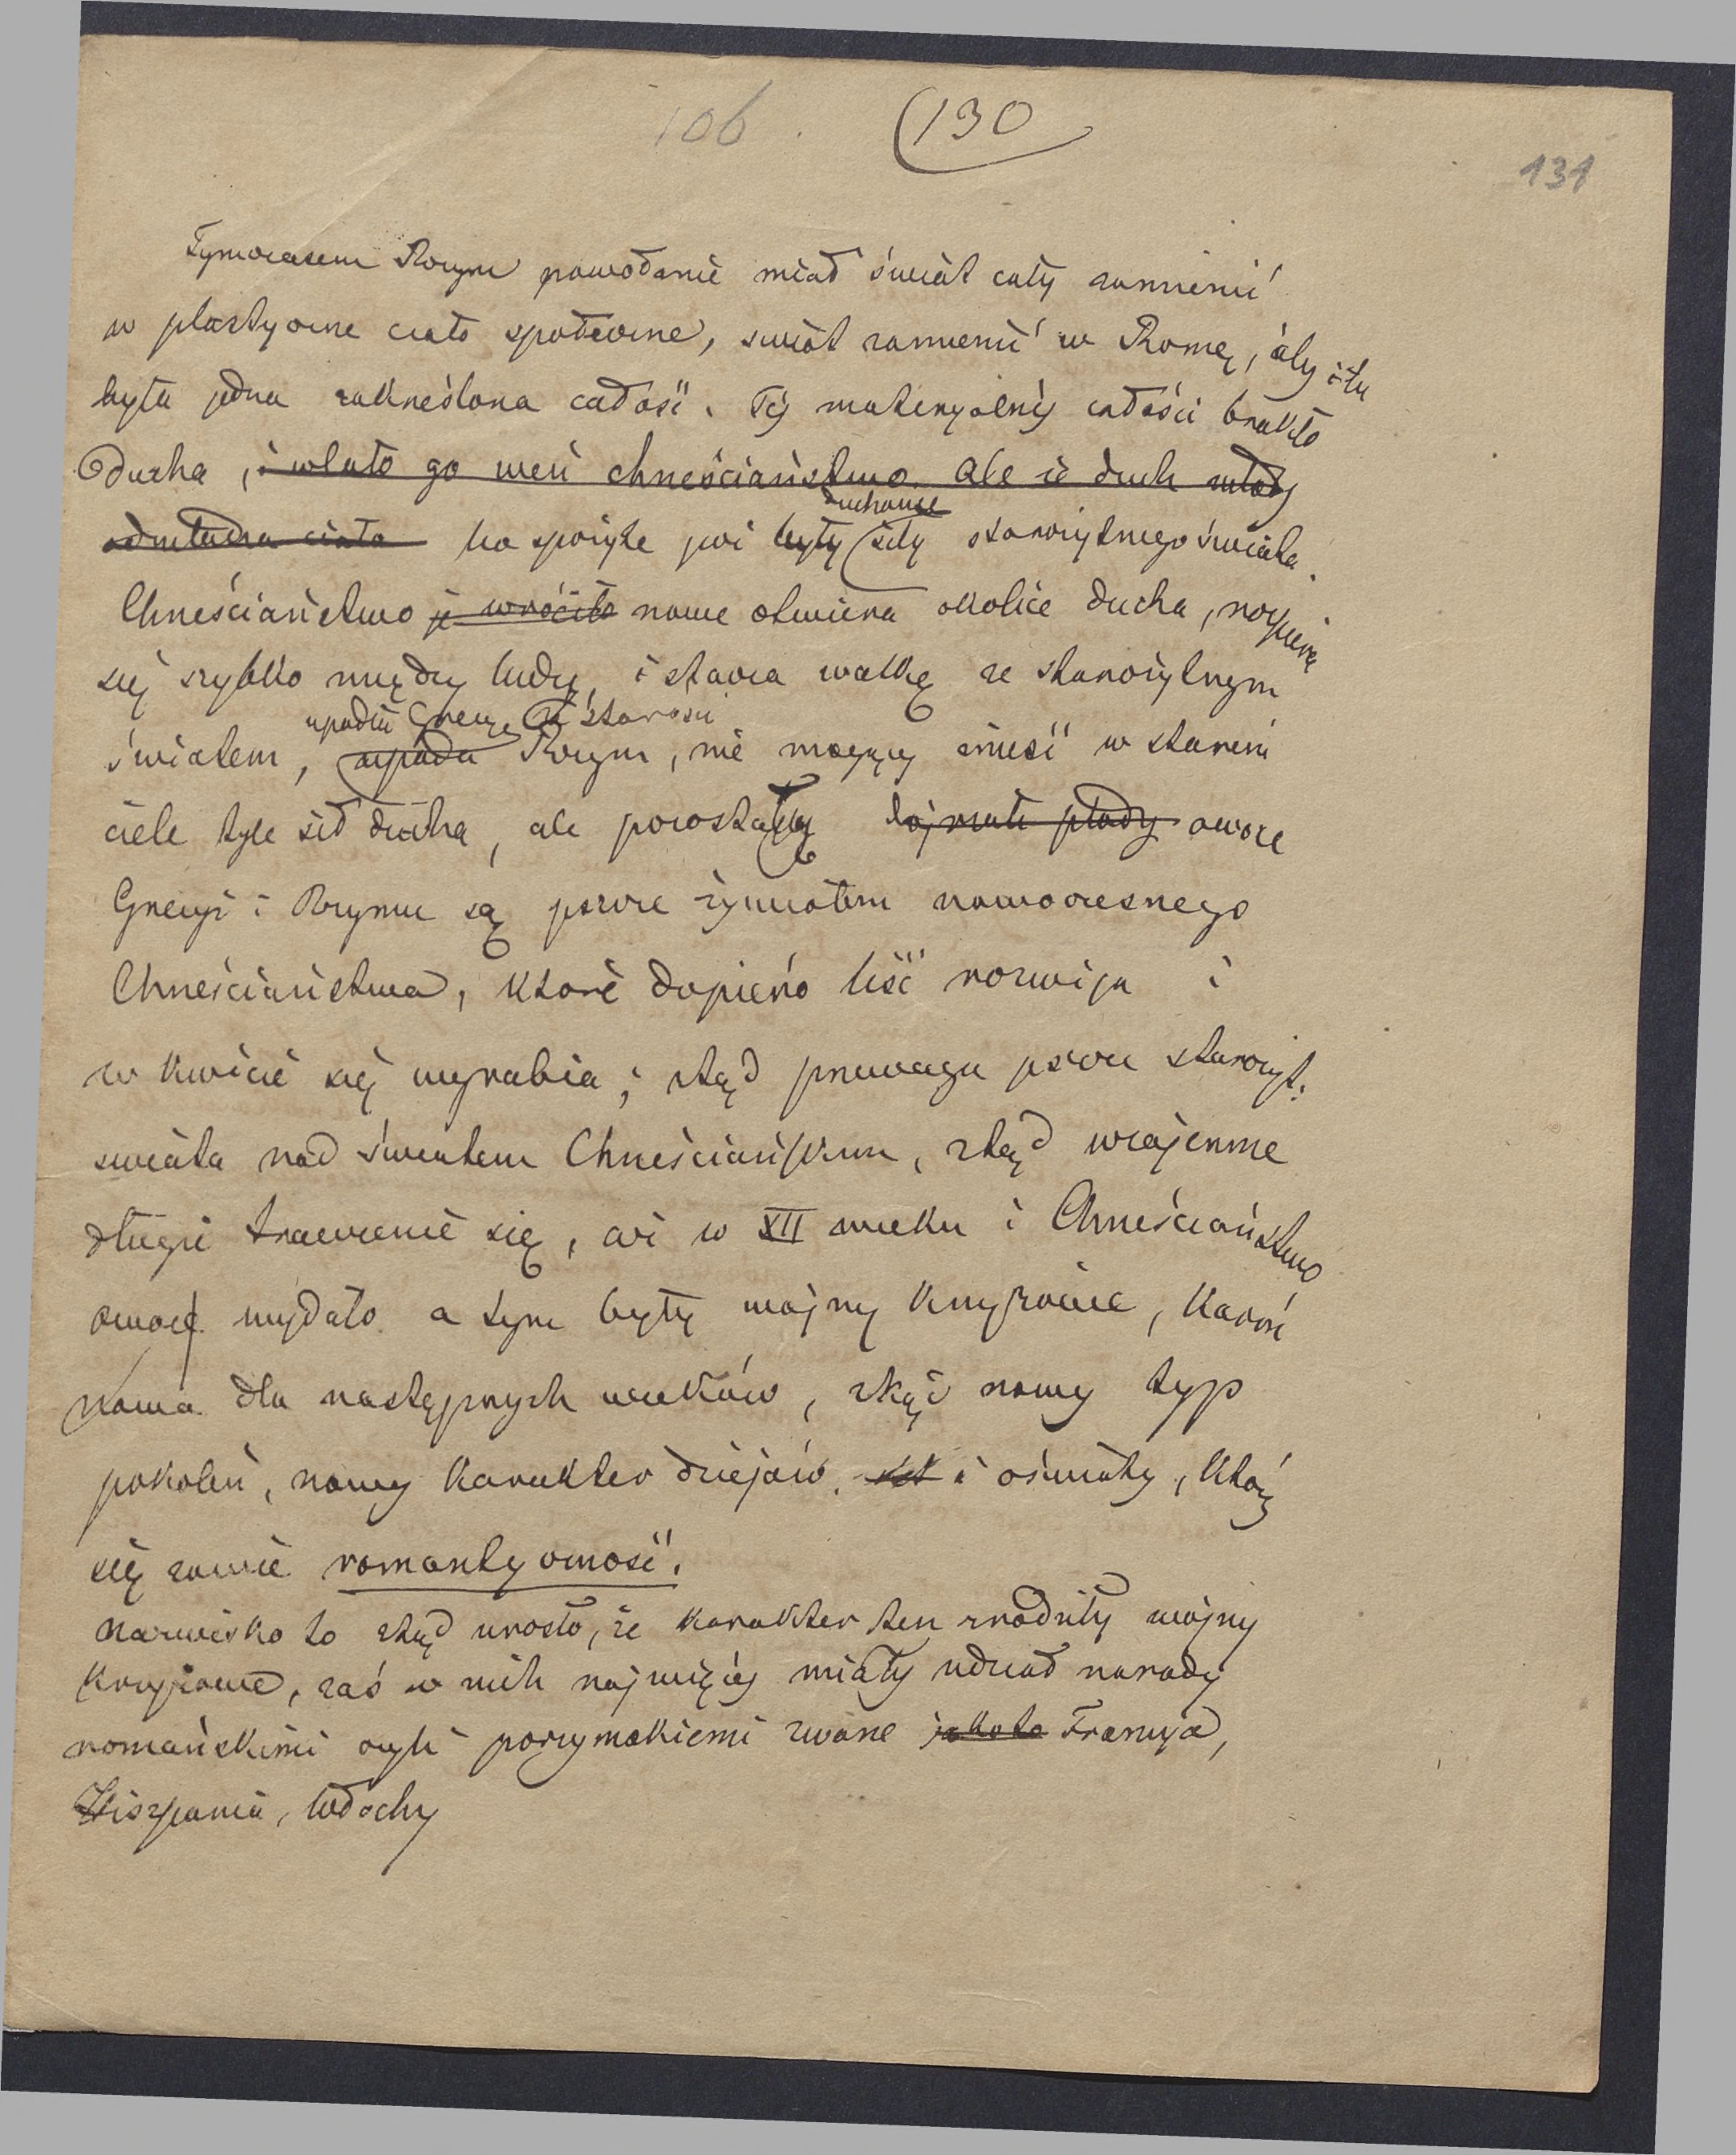 106 (130
131
Tymczasem Rzym powołanie miał świat cały zamienić
w plastyczne ciało społeczne, świat zamienić w Romę, aby
była jedna zakreślona całość. Téj materyalnéj całości brakło
Ducha, i wlało go weń chrześciaństwo. Ale iż duch młody
odmładza ciało bo spożyte już były siły starożytnego świata.
duchowe
Chrześciaństwo je wróciło nowe otwiera okolice ducha, rozpiera
się szybko między ludy, i stacza walkę ze starożytnym
upadła Grecya ze starości
światem, upada Rzym, nie mogący znieść w starém
ciele tyle sił ducha, ale pozostały płody owoce
Grecyi i Rzymu są jeszcze żywiołem nowoczesnego
Chrześciaństwa, które dopiero liść rozwija i
w kwiecie się wyrabia; ztąd przewaga jeszcze starożyt:
świata nad światem Chrześciańskim, ztąd wzajemne
długie trawienie się, aż w XII wieku i Chrześciaństwo
owoc wydało a tym były wojny krzyżowe, karm
nowa dla następnych wieków, ztąd nowy typ
pokoleń, nowy karakter dziejów. i oświaty, któréj
się zowie romantyczność.
Nazwisko to ztąd urosło, że karakter ten zrodziły wojny
krzyżowe, zaś w nich najwięcéj miały udział narody
romańskimi czyli porzymskiemi zwane jakoto Francya,
Hiszpania, Włochy